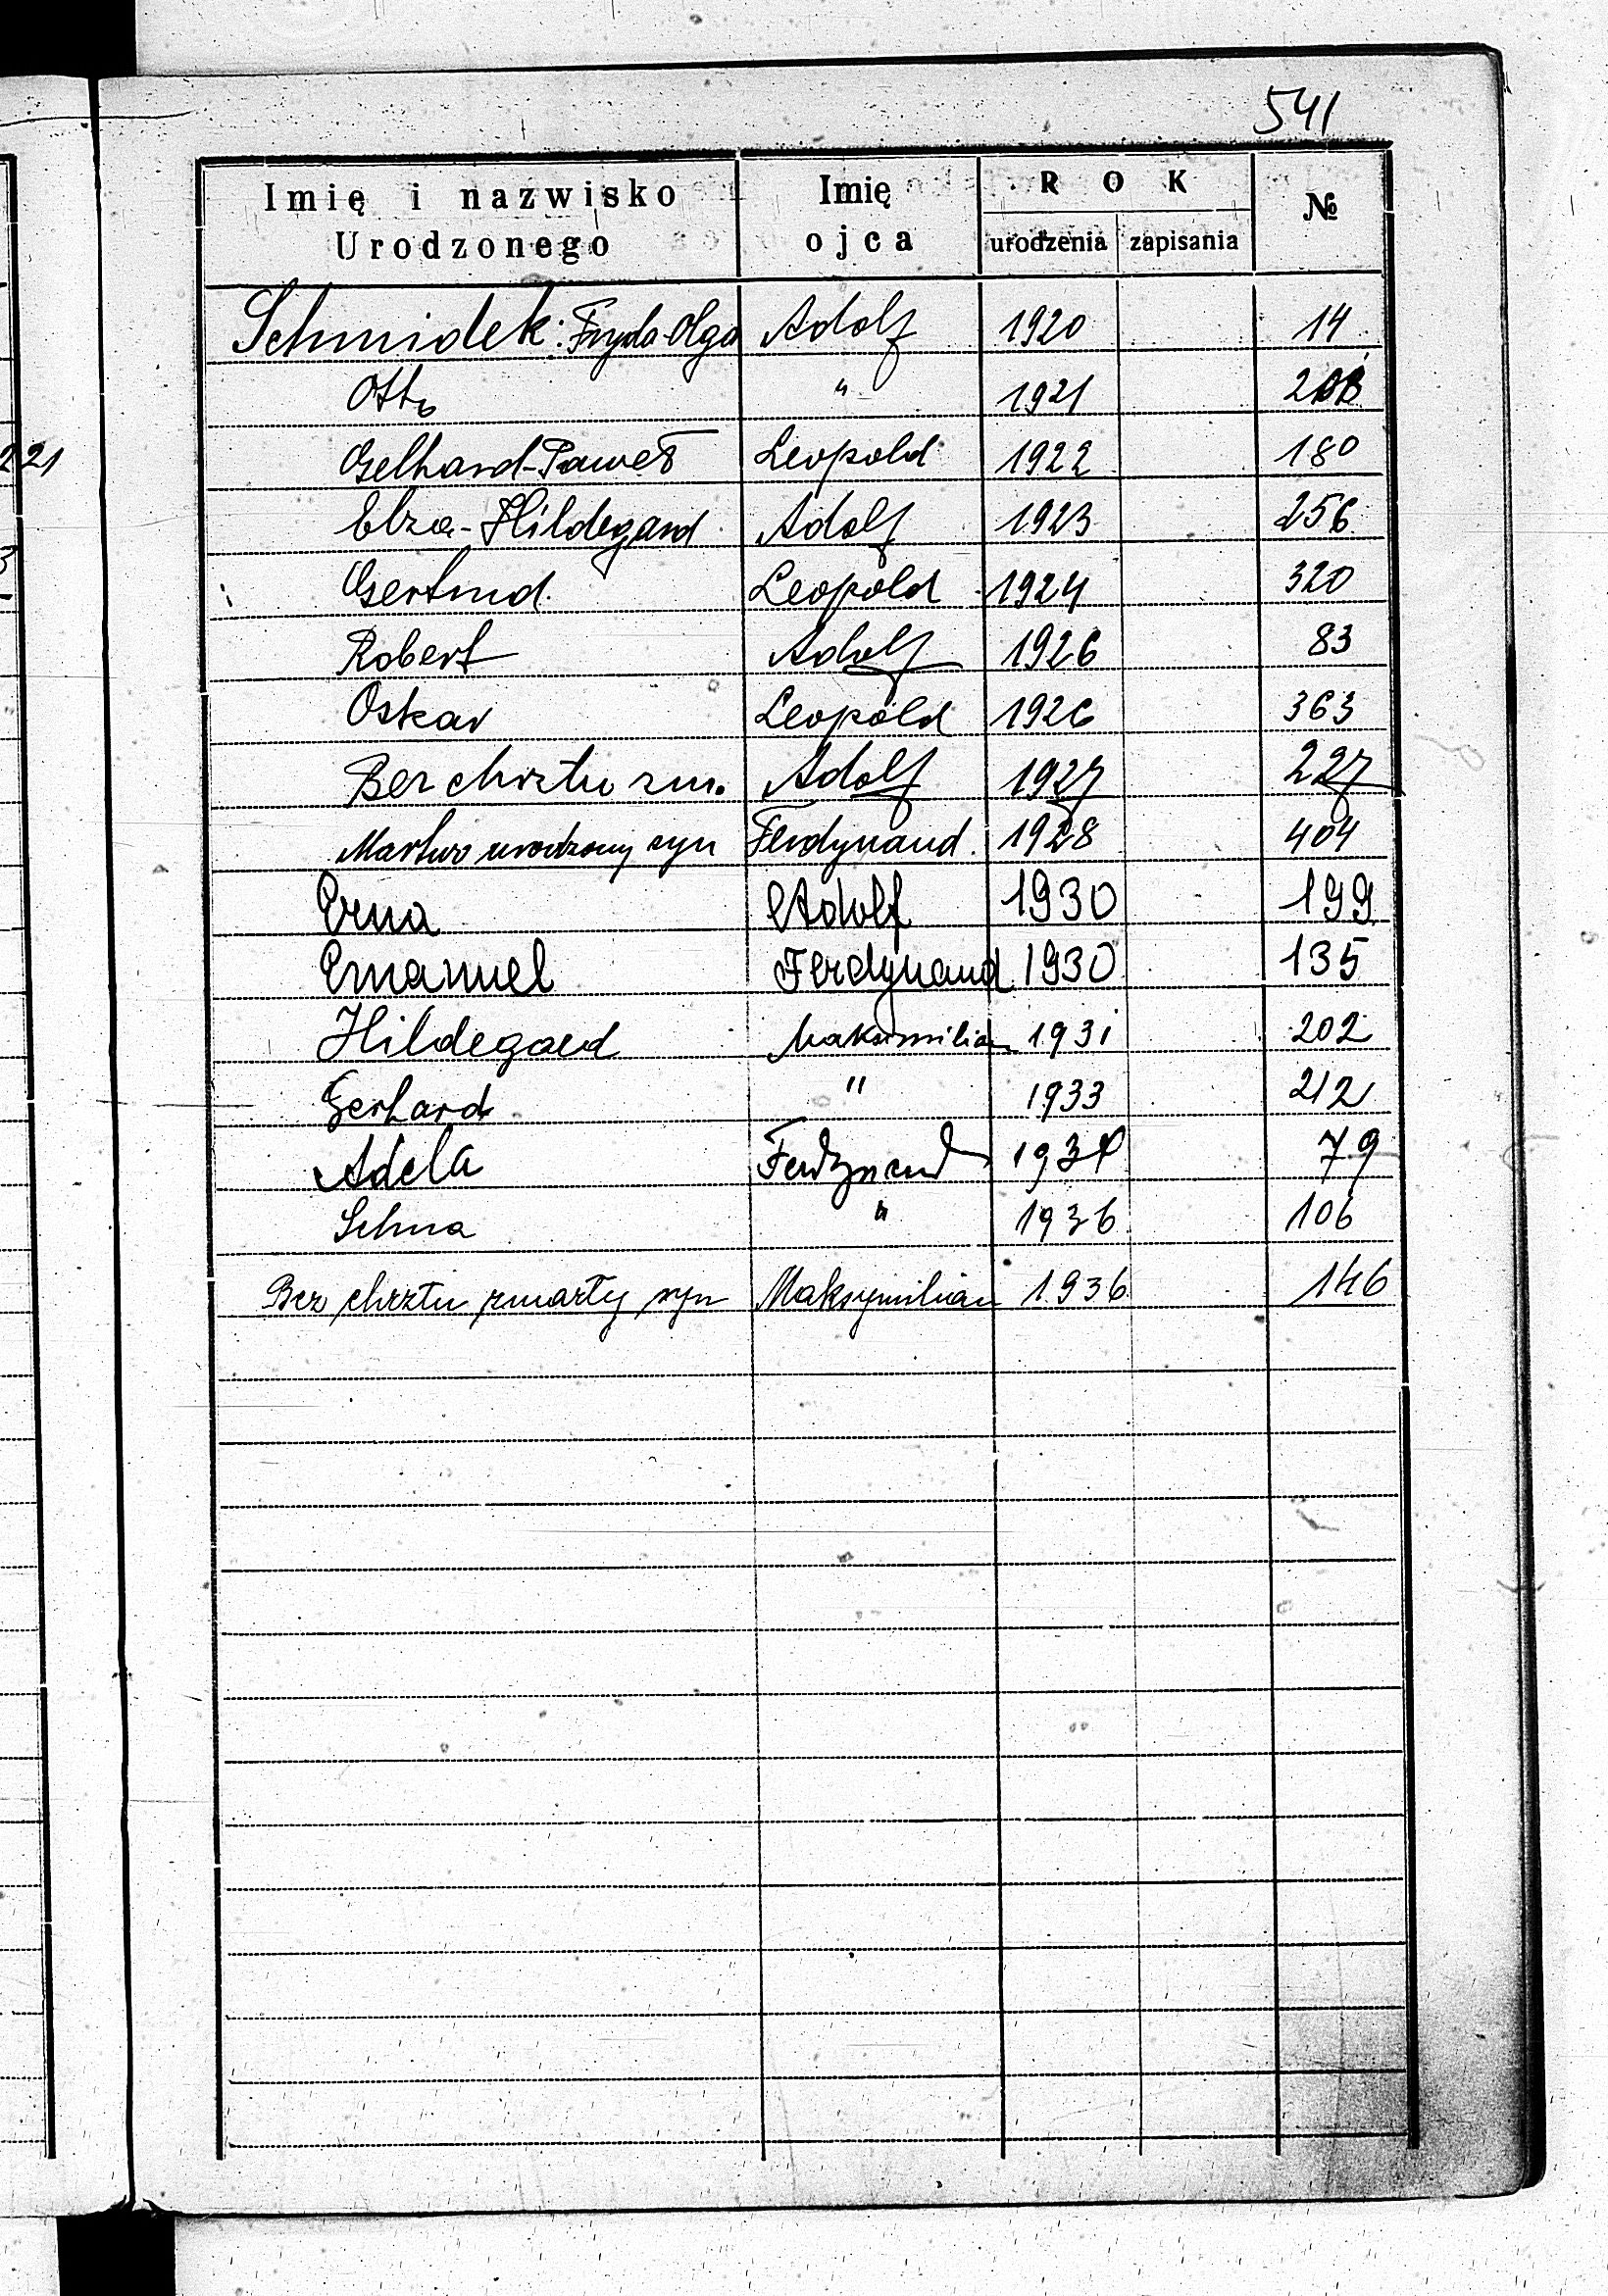 541
Imię i nazwisko Urodzonego | Imię ojca | ROK urodzenia | zapisania | №
Schmidek: Fryda-Olga Adolf 1920 14
Otto " 1921
Gelhard-Paweł Leopold 1922 180
Elza-Hildegard Adolf 1923 256
Gertrud. Leopold 1924 320
Robert Adolf 1926 83
Oskar Leopold 1926 363
Bez chrztu zm. Adolf 1927 227
Martwo urodzony syn Ferdynand. 1928 404
Erna Adolf 1930 199
Emanuel Ferdynand 1930 135
Hildegard Maksimilian 1931 202
Gerhard " 1933 212
Adela Ferdynand 1934 79
Selma " 1936 106
Bez chrztu zmarły syn Maksymilian 1936 146
221
3